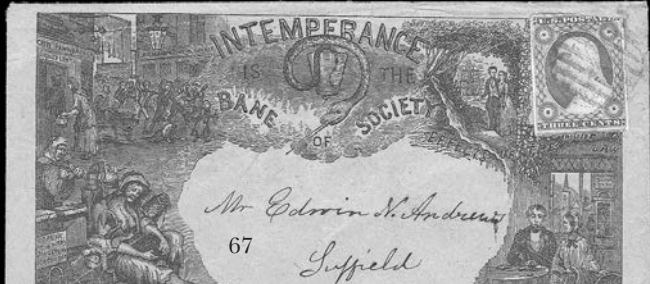 U.S. POSTAGE
INTEMPERANCE
IS THE
BANE OF SOCIETY
EFFECTS
THREE CENTS
Mr Edwin N. Andrews
67
Suffield